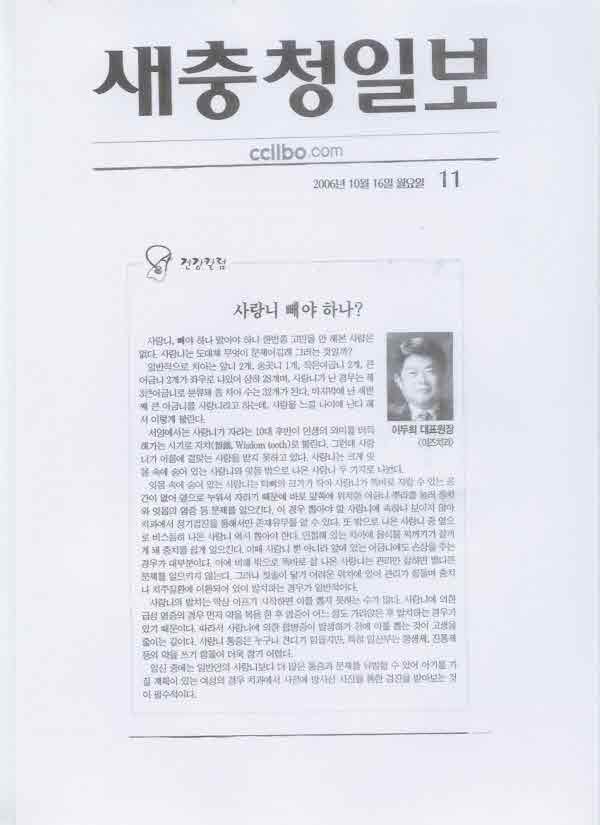 새충청일보
ccilbo.com
2006년 10월 16일 월요일 11
건강칼럼
사랑니 빼야 하나?
사랑니, 빼야 하나 말아야 하나 한번쯤 고민을 안 해본 사람은
없다. 사랑니는 도대체 무엇이 문제이길래 그러는 것일까?
일반적으로 치아는 앞니 2개, 송곳니 1개, 작은어금니 2개, 큰
어금니 2개가 좌우로 나있어 상하 28개며, 사랑니가 난 경우는 제
3큰어금니로 분류돼 총 치아 수는 32개가 된다. 마지막에 난 세번
째 큰 어금니를 사랑니라고 하는데, 사랑을 느낄 나이에 난다 해
서 이렇게 불린다.
이두희 대표원장
(이즈치과)
서양에서는 사랑니가 자라는 10대 후반이 인생의 의미를 터득
해가는 시기로 지치(智齒, Wisdom tooth)로 불린다. 그런데 사랑
니가 이름에 걸맞는 사랑을 받지 못하고 있다. 사랑니는 크게 잇
몸 속에 숨어 있는 사랑니와 잇몸 밖으로 나온 사랑니 두 가지로 나뉜다.
잇몸 속에 숨어 있는 사랑니는 턱뼈의 크기가 작아 사랑니가 똑바로 자랄 수 있는 공
간이 없어 옆으로 누워서 자라기 때문에 바로 앞쪽에 위치한 어금니 뿌리를 눌러 통증
와 잇몸의 염증 등 문제를 일으킨다. 이 경우 뽑아야 할 사랑니에 속하나 보이지 않아
치과에서 정기검진을 통해서만 존재유무를 알 수 있다. 또 밖으로 나온 사랑니 중 옆으
로 비스듬히 나온 사랑니 역시 뽑아야 한다. 인접해 있는 치아에 음식물 찌꺼기가 잘끼
게 돼 충치를 쉽게 일으킨다. 이때 사랑니 뿐 아니라 앞에 있는 어금니에도 손상을 주는
경우가 대부분이다. 이에 비해 밖으로 똑바로 잘 나온 사랑니는 관리만 잘하면 별다른
문제를 일으키지 않는다. 그러나 칫솔이 닿기 어려운 위치에 있어 관리가 힘들며 충치
나 치주질환에 이환되어 있어 발치하는 경우가 일반적이다.
사랑니의 발치는 막상 아프기 시작하면 이를 뽑지 못하는 수가 많다. 사랑니에 의한
급성 염증의 경우 먼저 약을 복용 한 후 염증이 어느 정도 가라앉은 후 발치하는 경우가
있기 때문이다. 따라서 사랑니에 의한 합병증이 발생하기 전에 이를 뽑는 것이 고생을
줄이는 길이다. 사랑니 통증은 누구나 견디기 힘들지만, 특히 임산부는 항생제, 진통제
등의 약을 쓰기 힘들어 더욱 참기 어렵다.
임신 중에는 일반인의 사랑니보다 더 많은 통증과 문제를 유발할 수 있어 아기를 가
질 계획이 있는 여성의 경우 치과에서 사전에 방사선 사진을 통한 검진을 받아보는 것
이 필수적이다.